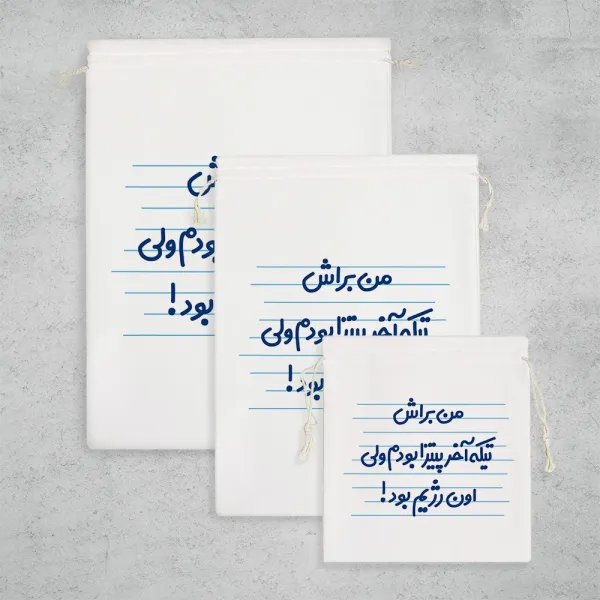 ش
بودم ولی
بود!
من براش
تیکه آخر پیتزا بودم ولی
بود!
من براش
تیکه آخر پیتزا بودم ولی
اون رژیم بود!